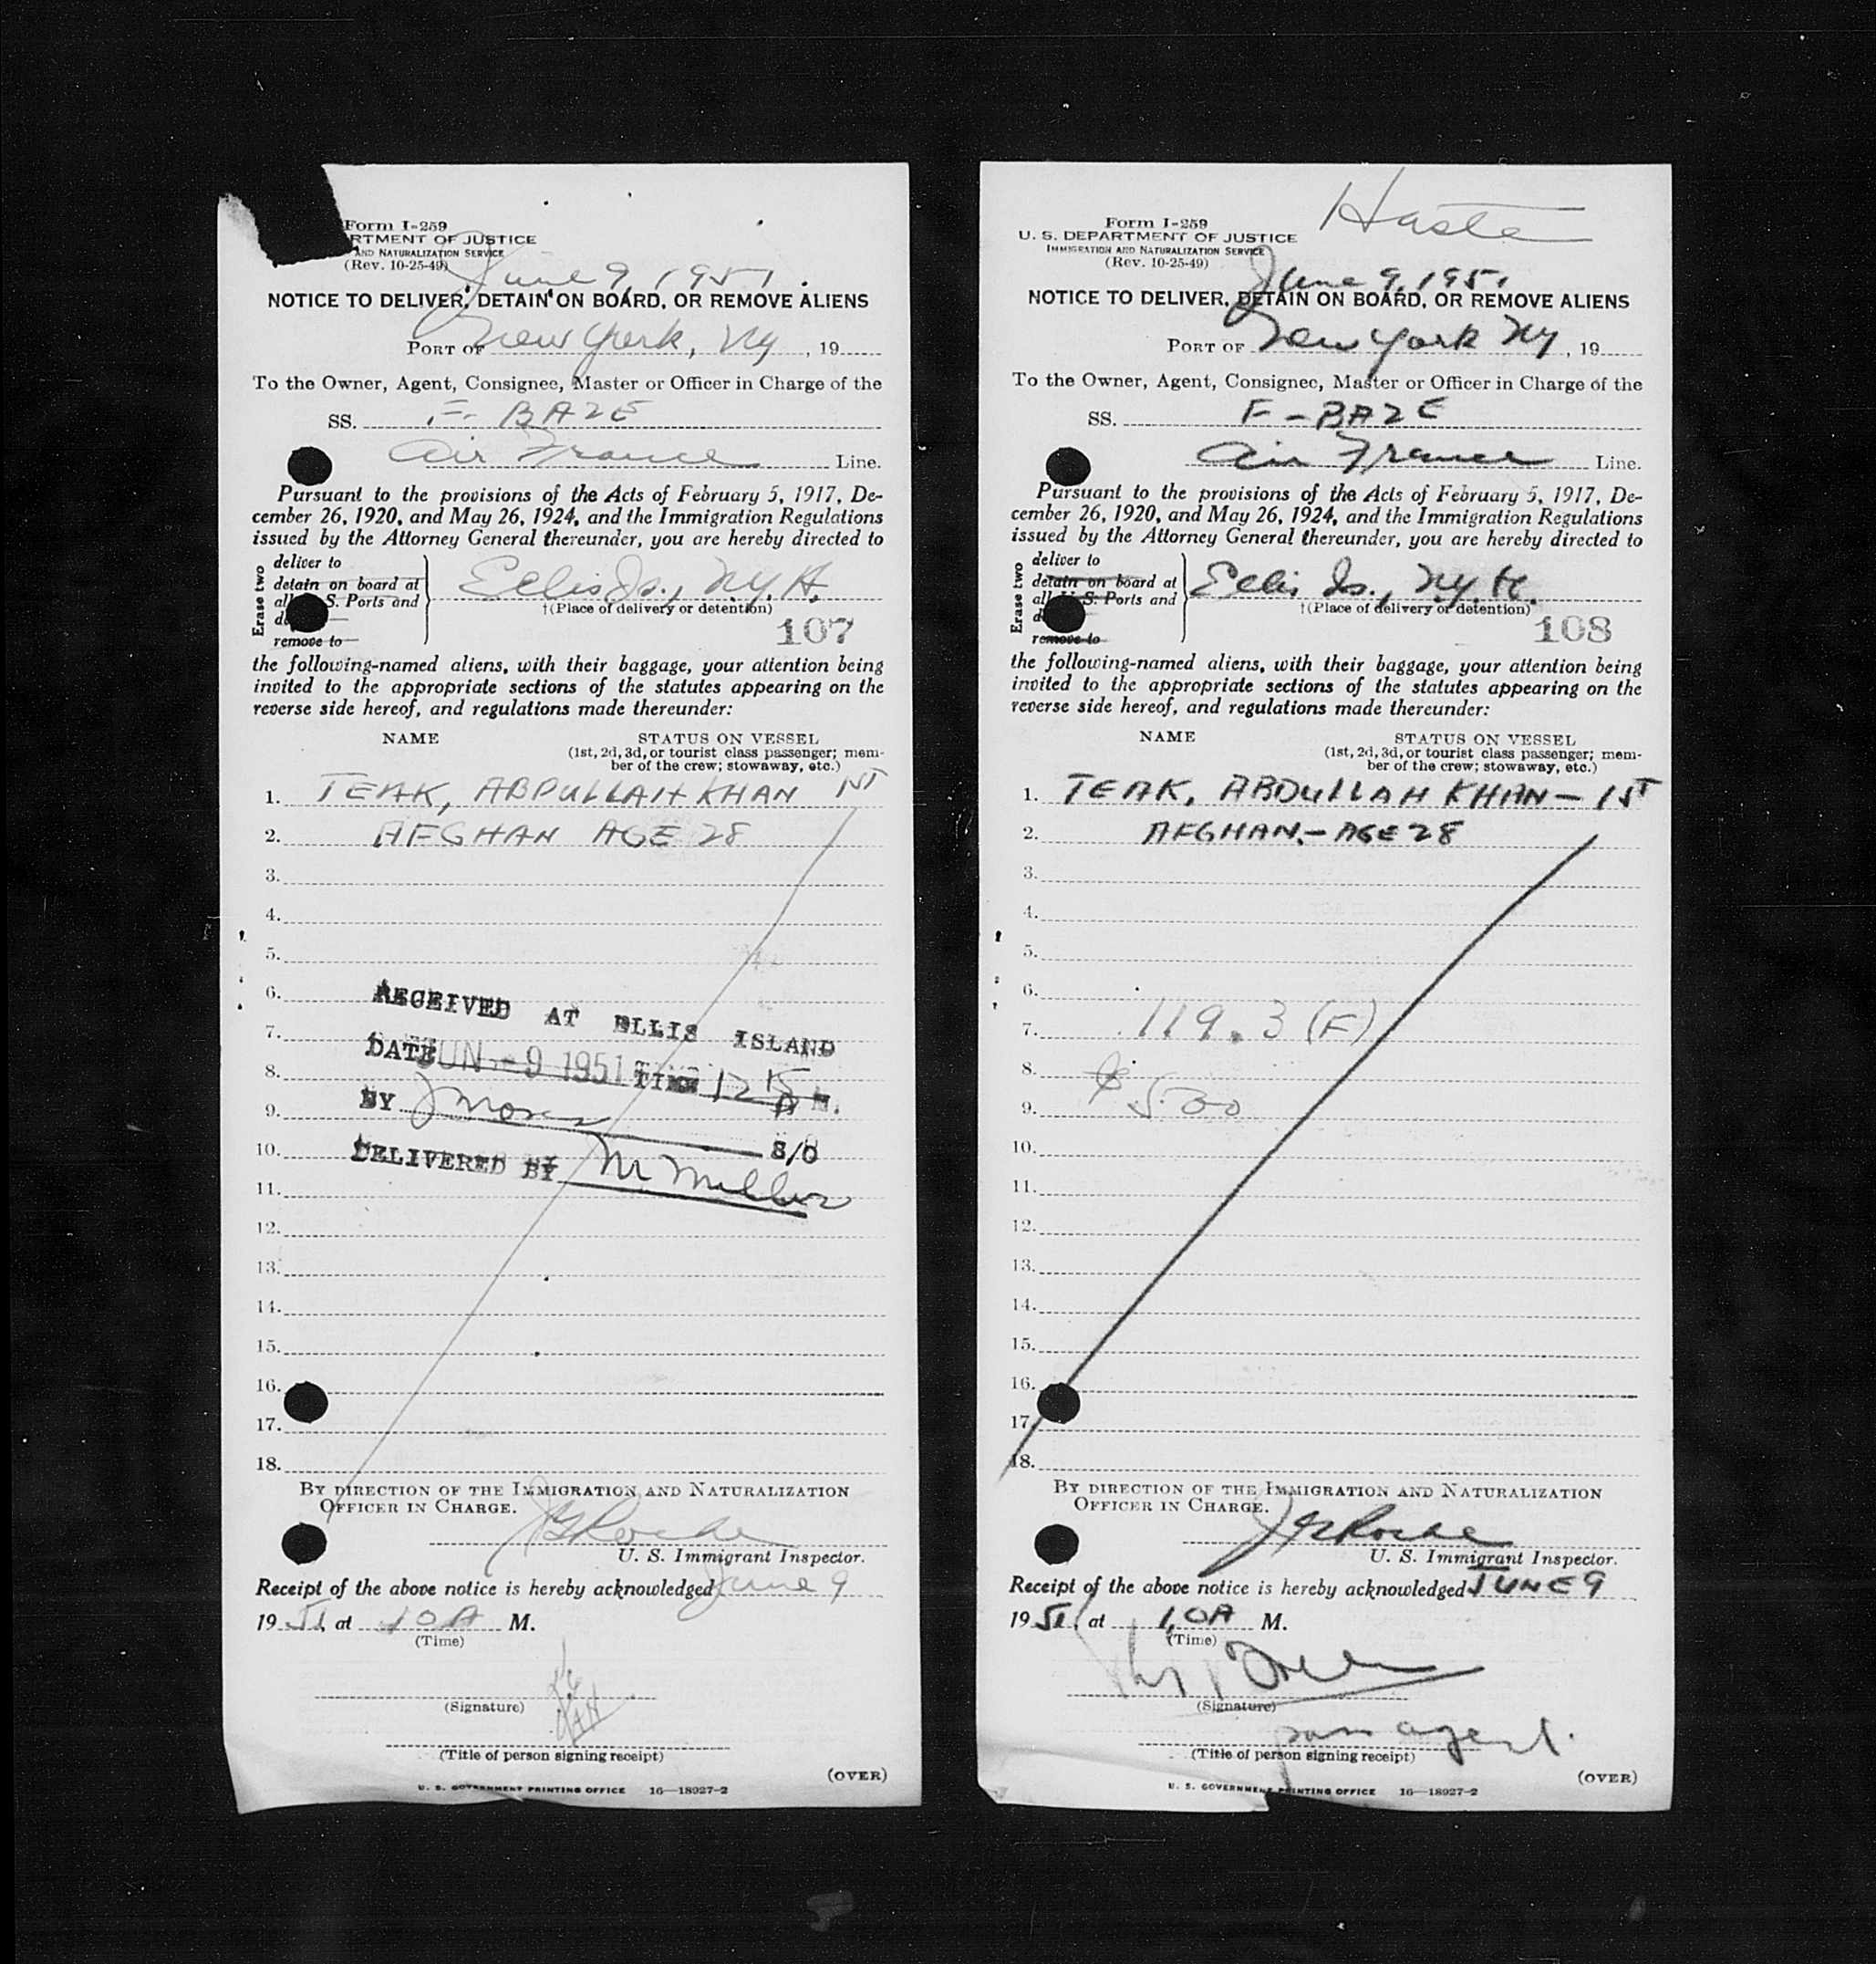 Form I-259
RTMENT OF JUSTICE
AND NATURALIZATION SERVICE
(Rev. 10-25-49)
June 9, 1951.
NOTICE TO DELIVER, DETAIN ON BOARD, OR REMOVE ALIENS
PORT OF New York, NY , 19
To the Owner, Agent, Consignee, Master or Officer in Charge of the
SS. F-BAZE
Air France Line.
Pursuant to the provisions of the Acts of February 5, 1917, De-
cember 26, 1920, and May 26, 1924, and the Immigration Regulations
issued by the Attorney General thereunder, you are hereby directed to
Erase two
deliver to
detain on board at
all S. Ports and
remove to
Ellis Is., N.Y.H.
†(Place of delivery or detention)
107
the following-named aliens, with their baggage, your attention being
invited to the appropriate sections of the statutes appearing on the
reverse side hereof, and regulations made thereunder:
NAME STATUS ON VESSEL
(1st, 2d, 3d, or tourist class passenger; mem-
ber of the crew; stowaway, etc.)
1. TEAK, ABDULLAH KHAN 1ST
2. AFGHAN AGE 28
3.
4.
5.
6.
RECEIVED AT ELLIS ISLAND
7.
DATE JUN -9 1951 TIME 12 15 P M.
8.
BY J Moses S/O
9.
10.
DELIVERED BY Mr Miller
11.
12.
13.
14.
15.
16.
17.
18.
BY DIRECTION OF THE IMMIGRATION AND NATURALIZATION
OFFICER IN CHARGE.
JG Roche
U. S. Immigrant Inspector.
Receipt of the above notice is hereby acknowledged June 9
19 51, at 10 A M.
(Time)
(Signature)
(Title of person signing receipt)
(OVER)
U. S. GOVERNMENT PRINTING OFFICE 16—18927-2
Haste
Form I-259
U. S. DEPARTMENT OF JUSTICE
IMMIGRATION AND NATURALIZATION SERVICE
(Rev. 10-25-49)
June 9, 1951
NOTICE TO DELIVER, DETAIN ON BOARD, OR REMOVE ALIENS
PORT OF New York NY , 19
To the Owner, Agent, Consignee, Master or Officer in Charge of the
SS. F-BAZE
Air France Line.
Pursuant to the provisions of the Acts of February 5, 1917, De-
cember 26, 1920, and May 26, 1924, and the Immigration Regulations
issued by the Attorney General thereunder, you are hereby directed to
Erase two
deliver to
detain on board at
all U. S. Ports and
remove to
Ellis Is., N.Y.H.
†(Place of delivery or detention)
108
the following-named aliens, with their baggage, your attention being
invited to the appropriate sections of the statutes appearing on the
reverse side hereof, and regulations made thereunder:
NAME STATUS ON VESSEL
(1st, 2d, 3d, or tourist class passenger; mem-
ber of the crew; stowaway, etc.)
1. TEAK, ABDULLAH KHAN - 1ST
2. AFGHAN. - AGE 28
3.
4.
5.
6.
7. 119.3 (F)
8.
$ 500
9.
10.
11.
12.
13.
14.
15.
16.
17.
18.
BY DIRECTION OF THE IMMIGRATION AND NATURALIZATION
OFFICER IN CHARGE.
JG Roche
U. S. Immigrant Inspector.
Receipt of the above notice is hereby acknowledged JUNE 9
19 51, at 10A M.
(Time)
(Signature)
pass agent.
(Title of person signing receipt)
(OVER)
U. S. GOVERNMENT PRINTING OFFICE 16—18927-2